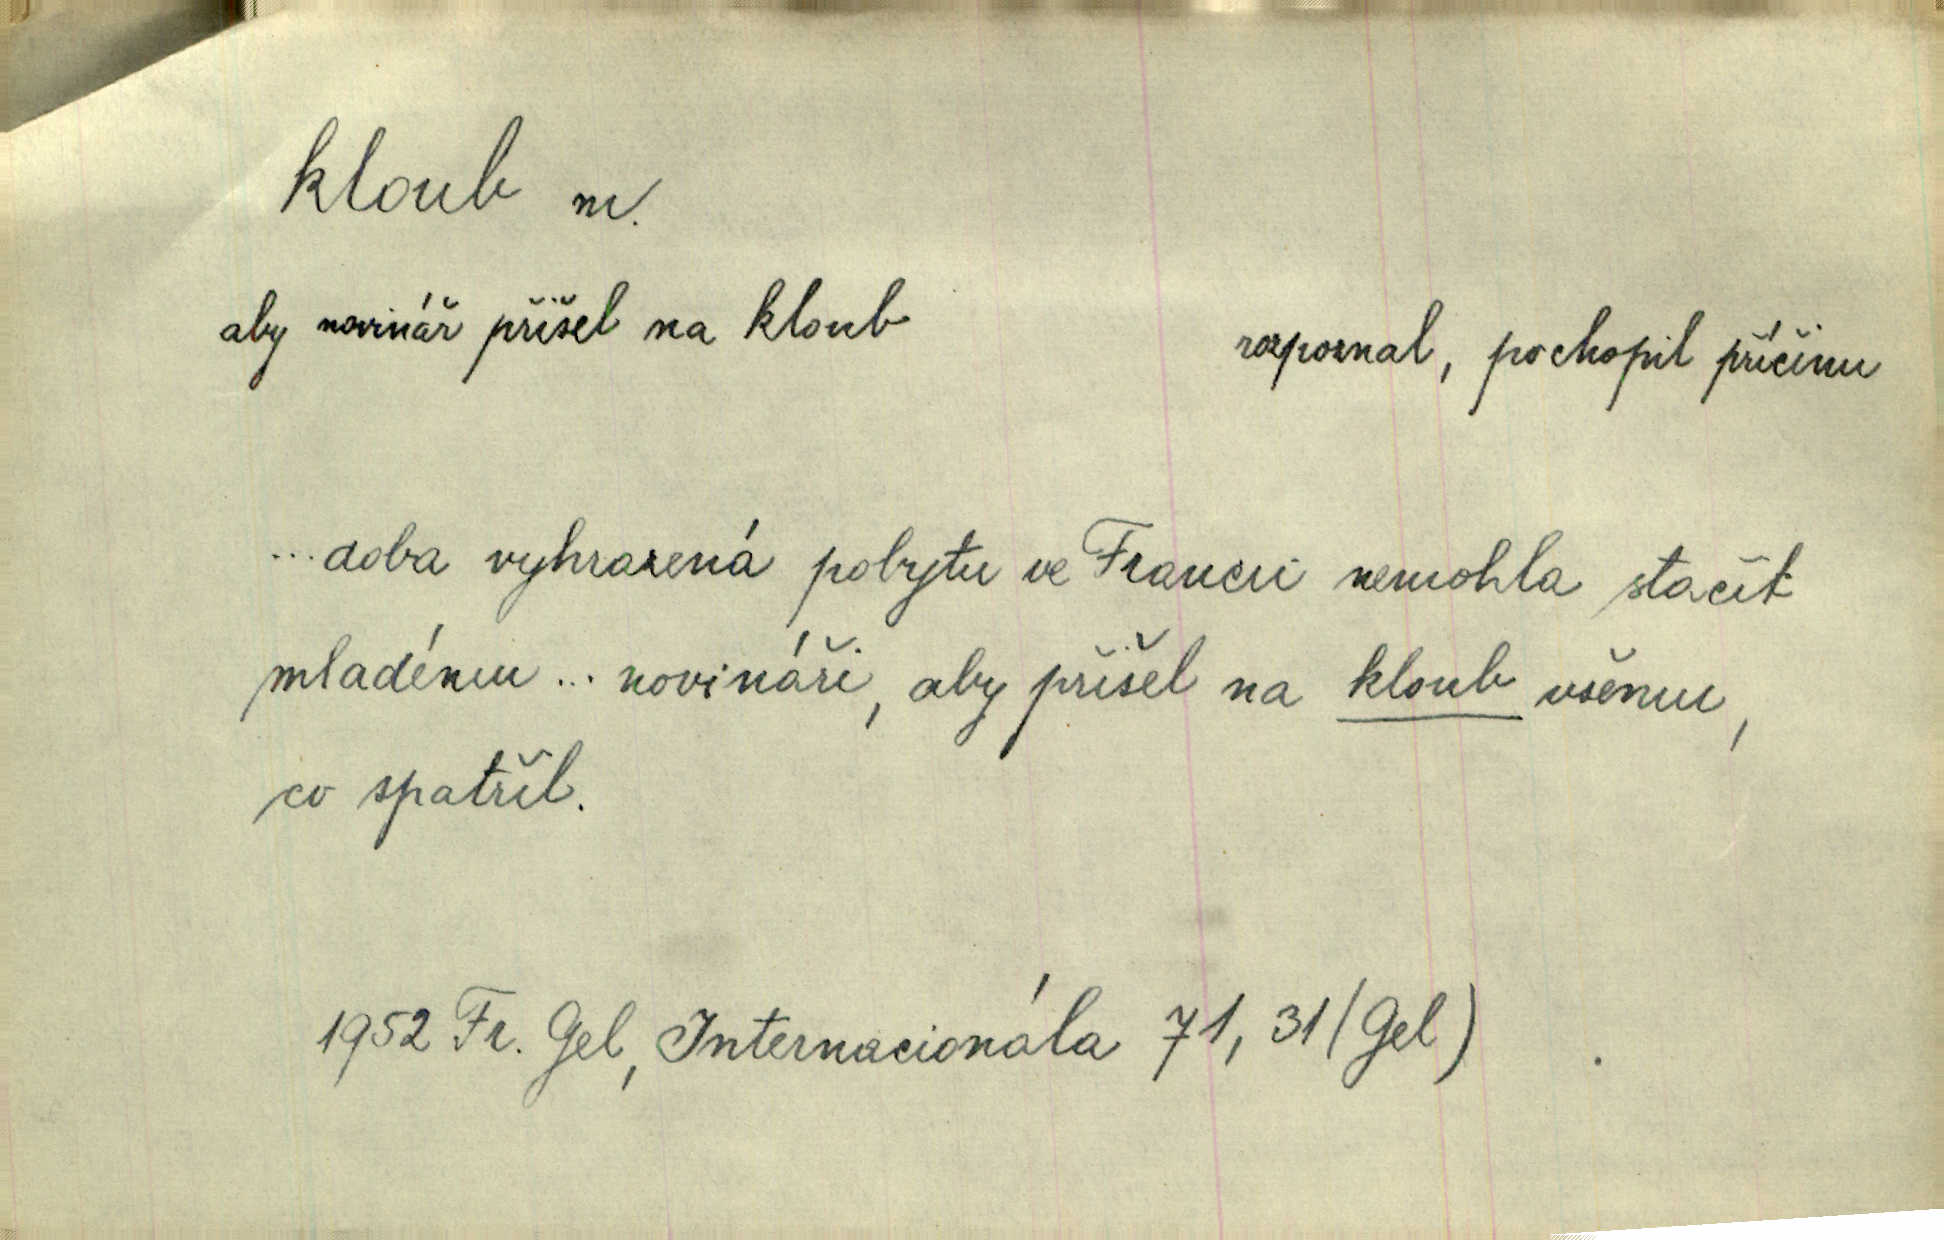 kloub m.
aby novinář přišel na kloub
rozpoznal, pochopil příčinu
...doba vyhrazená pobytu ve Francii nemohla stačit
mladému ... novináři, aby přišel na kloub všemu,
co spatřil.
1952 Fr. Gel, Internacionála 71, 31 (Gel)